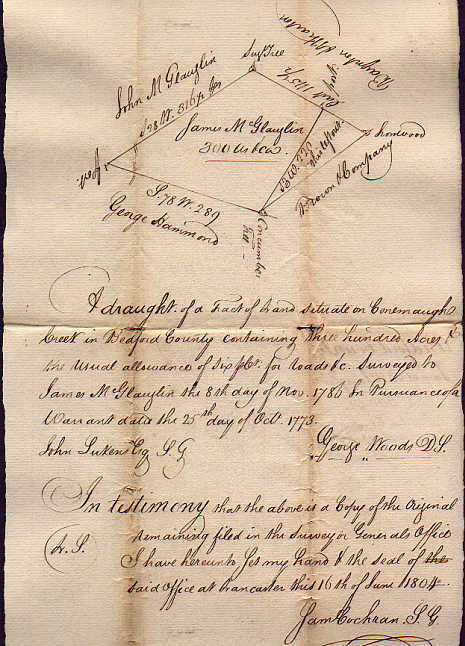 John McGlauglin
S 28 W. 316 ps
Sug Tree
James McGlauglin
300 acs &c.
Ironwood
Brown & Company
S. 78 W. 289
George Hammond
Cucumber
A draught of a Tract of Land situate on Conemaugh
Creek in Bedford County containing three hundred Acres &
the usual allowance of six pCt. for roads &c. Surveyed to
James McGlauglin the 8th day of Nov. 1786 In Pursuance of a
Warrant dated the 25th day of Octr. 1773.
John Lukens Esq S. G
George Woods D.S.
In testimony that the above is a Copy of the Original
L. S. remaining filed in the Surveyor Generals Office
I have hereunto set my hand & the seal of the
said Office at Lancaster this 16th of June 1804.
Saml Cochran. S. G.